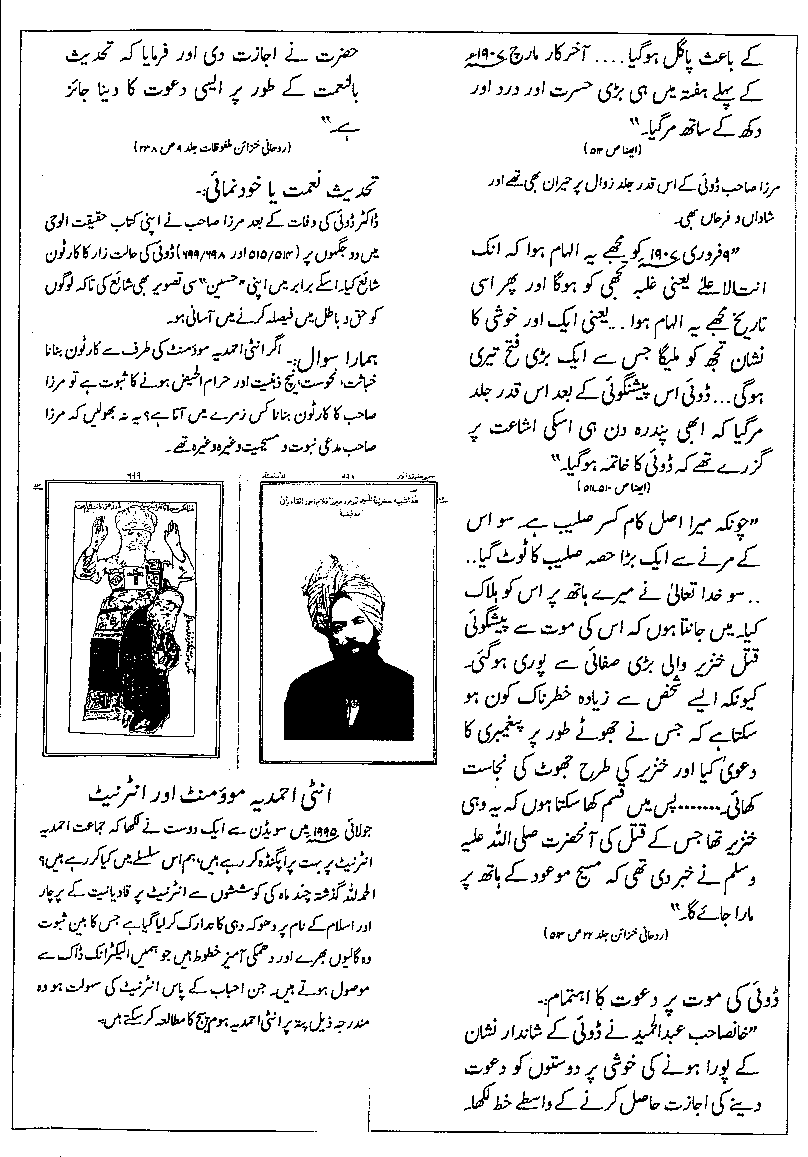 کے باعث پاگل ہوگیا.... آخر کار مارچ ۱۹۰۷ء
کے پہلے ہفتہ میں ہی بڑی حسرت اور درد اور
دکھ کے ساتھ مرگیا۔"
(ایضا ص ۵۱۳)
مرزا صاحب ڈوئی کے اس قدر جلد زوال پر حیران بھی تھے اور
شاداں و فرحاں بھی۔
"۹ فروری ۱۹۰۷ء کو مجھے یہ الہام ہوا کہ انک
انت الاعلےٰ یعنی غلبہ تجھی کو ہوگا اور پھر اسی
تاریخ مجھے یہ الہام ہوا ... یعنی ایک اور خوشی کا
نشان تجھ کو ملیگا جس سے ایک بڑی فتح تیری
ہوگی... ڈوئی اس پیشگوئی کے بعد اس قدر جلد
مرگیا کہ ابھی پندرہ دن ہی اسکی اشاعت پر
گزرے تھے کہ ڈوئی کا خاتمہ ہوگیا۔"
(ایضا ص ۵۱۰،۵۱۱)
"چونکہ میرا اصل کام کسر صلیب ہے۔ سو اس
کے مرنے سے ایک بڑا حصہ صلیب کا ٹوٹ گیا..
.. سو خدا تعالیٰ نے میرے ہاتھ پر اس کو ہلاک
کیا۔ میں جانتا ہوں کہ اس کی موت سے پیشگوئی
قتل خنزیر والی بڑی صفائی سے پوری ہوگئی۔
کیونکہ ایسے شخص سے زیادہ خطرناک کون ہو
سکتا ہے کہ جس نے جھوٹے طور پر پیغمبری کا
دعویٰ کیا اور خنزیر کی طرح جھوٹ کی نجاست
کھائی۔....... پس میں قسم کھا سکتا ہوں کہ یہ وہی
خنزیر تھا جس کے قتل کی آنحضرت صلی اللہ علیہ
وسلم نے خبر دی تھی کہ مسیح موعود کے ہاتھ پر
مارا جائے گا۔"
(روحانی خزائن جلد ۲۲ ص ۵۱۳)
ڈوئی کی موت پر دعوت کا اہتمام:۔
"خانصاحب عبدالحمید نے ڈوئی کے شاندار نشان
کے پورا ہونے کی خوشی پر دوستوں کو دعوت
دینے کی اجازت حاصل کرنے کے واسطے خط لکھا۔
حضرت نے اجازت دی اور فرمایا کہ تحدیث
بالنعمت کے طور پر ایسی دعوت کا دینا جائز
ہے۔"
(روحانی خزائن ملفوظات جلد ۹ ص ۲۳۸)
تحدیث نعمت یا خود نمائی:۔
ڈاکٹر ڈوئی کی وفات کے بعد مرزا صاحب نے اپنی کتاب حقیقت الوحی
میں دو جگہوں پر (۵۱۵/۵۱۴ اور ۶۹۹/۶۹۸) ڈوئی کی حالت زار کا کارٹون
شائع کیا۔ اسکے برابر میں اپنی "حسین" سی تصویر بھی شائع کی تاکہ لوگوں
کو حق و باطل میں فیصلہ کرنے میں آسانی ہو۔
ہمارا سوال:۔ اگر انٹی احمدیہ موومنٹ کی طرف سے کارٹون بنانا
خباثت، نحوست، نیچ ذہنیت اور حرام الحیض ہونے کا ثبوت ہے تو مرزا
صاحب کا کارٹون بنانا کس زمرے میں آتا ہے؟ یہ نہ بھولیں کہ مرزا
صاحب مدعی نبوت و مسیحیت وغیرہ وغیرہ تھے۔
۶۹۸
۶۹۹
انٹی احمدیہ موومنٹ اور انٹرنیٹ
جولائی ۱۹۹۵ء میں سویڈن سے ایک دوست نے لکھا کہ جماعت احمدیہ
انٹرنیٹ پر بہت پراپگنڈہ کر رہے ہیں، ہم اس سلسلے میں کیا کر رہے ہیں؟
الحمدللہ گذشتہ چند ماہ کی کوششوں سے انٹرنیٹ پر قادیانیت کے پرچار
اور اسلام کے نام پر دھوکہ دہی کا تدارک کرلیا گیا ہے جس کا بین ثبوت
وہ گالیوں بھرے اور دھمکی آمیز خطوط ہیں جو ہمیں الیکٹرانک ڈاک سے
موصول ہوتے ہیں۔ جن احباب کے پاس انٹرنیٹ کی سہولت ہو وہ
مندرجہ ذیل پتہ پر انٹی احمدیہ ہوم پیج کا مطالعہ کر سکتے ہیں۔